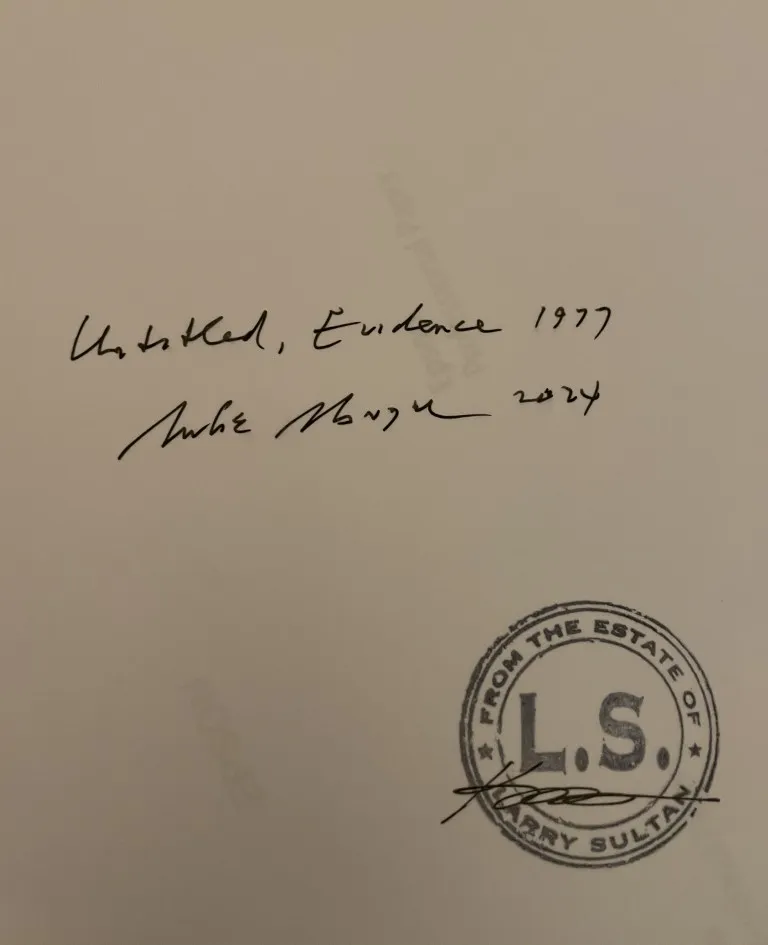 Untitled, Evidence 1977
Mike Mandel 2024
FROM THE ESTATE OF
L.S.
LARRY SULTAN